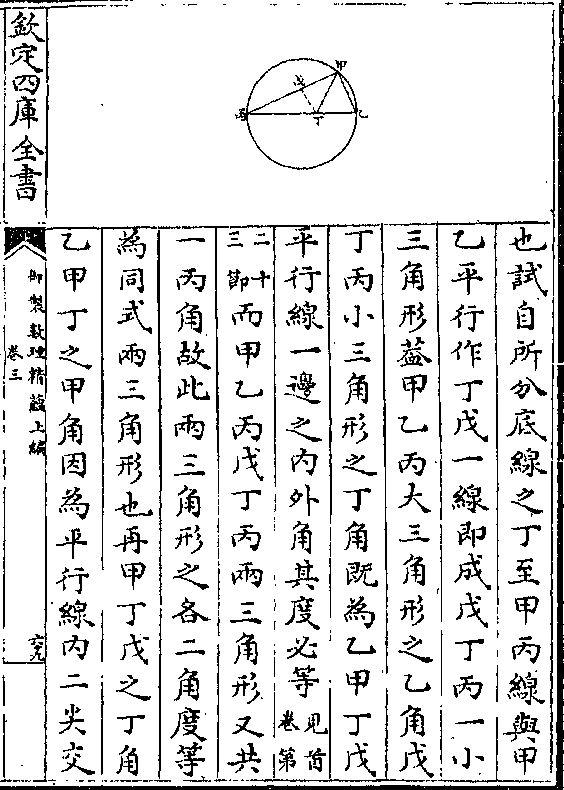 甲
戊
丙
丁
乙
也試自所分底線之丁至甲丙線與甲
乙平行作丁戊一線即成戊丁丙一小
三角形葢甲乙丙大三角形之乙角戊
丁丙小三角形之丁角既為乙甲丁戊
平行線一邊之内外角其度必等見首卷第
二十三節而甲乙丙戊丁丙兩三角形又共
一丙角故此兩三角形之各二角度等
為同式兩三角形也再甲丁戊之丁角
乙甲丁之甲角因為平行線内二尖交
欽定四庫全書
御製數理精蘊上編
卷三
六九